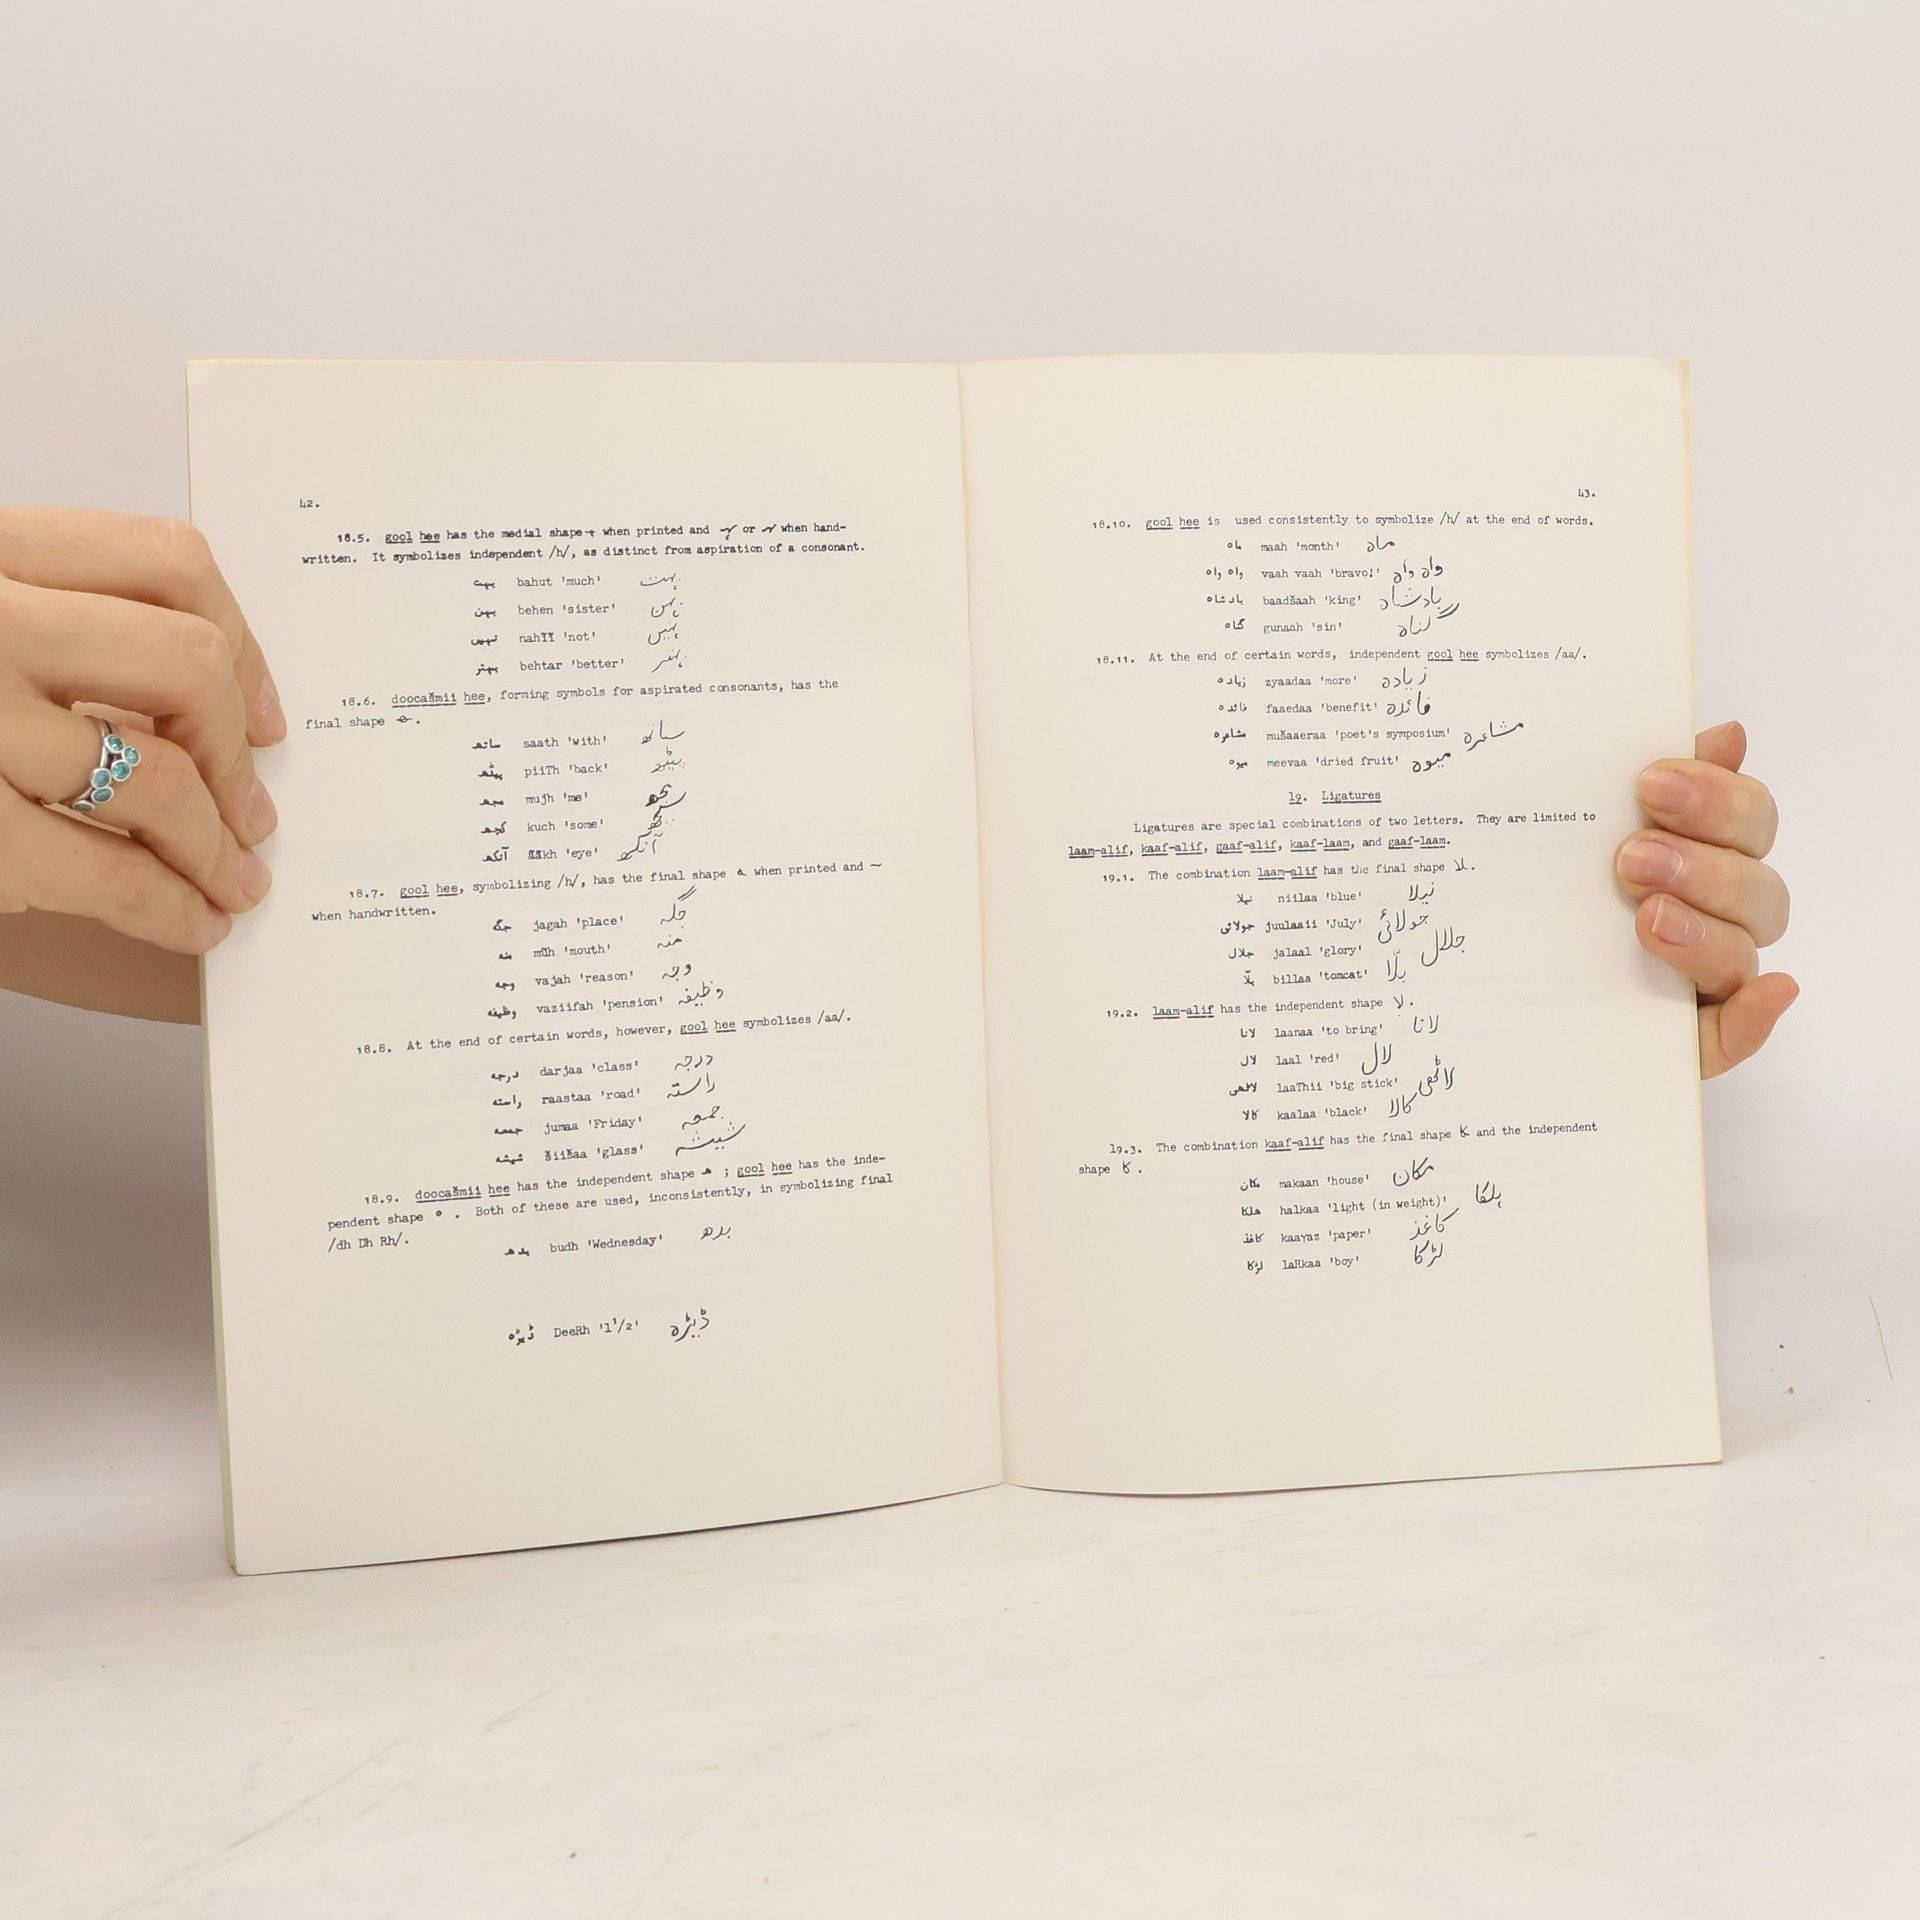 42.
18.5. gool hee has the medial shape when printed and or when hand-
written. It symbolizes independent /h/, as distinct from aspiration of a consonant.
بہت bahut 'much' بہت
بہن behen 'sister' بہن
نہیں nahĩĩ 'not' نہیں
بہتر behtar 'better' بہتر
18.6. doocašmii hee, forming symbols for aspirated consonants, has the
final shape ھ.
ساتھ saath 'with' ساتھ
پیٹھ piiTh 'back' پیٹھ
مجھ mujh 'me' مجھ
کچھ kuch 'some' کچھ
آنکھ ããkh 'eye' آنکھ
18.7. gool hee, symbolizing /h/, has the final shape ہ when printed and
when handwritten.
جگہ jagah 'place' جگہ
منہ mũh 'mouth' منہ
وجہ vajah 'reason' وجہ
وظیفہ vaziifah 'pension' وظیفہ
18.8. At the end of certain words, however, gool hee symbolizes /aa/.
درجہ darjaa 'class' درجہ
راستہ raastaa 'road' راستہ
جمعہ jumaa 'Friday' جمعہ
شیشہ šiišaa 'glass' شیشہ
18.9. doocašmii hee has the independent shape ھ ; gool hee has the inde-
pendent shape ہ . Both of these are used, inconsistently, in symbolizing final
/dh Dh Rh/.
بدھ budh 'Wednesday' بدھ
ڈیڑہ DeeRh '1 1/2' ڈیڑہ
43.
18.10. gool hee is used consistently to symbolize /h/ at the end of words.
ماہ maah 'month' ماہ
واہ واہ vaah vaah 'bravo!' واہ واہ
بادشاہ baadšaah 'king' بادشاہ
گناہ gunaah 'sin' گناہ
18.11. At the end of certain words, independent gool hee symbolizes /aa/.
زیادہ zyaadaa 'more' زیادہ
فائدہ faaedaa 'benefit' فائدہ
مشاعرہ mušaaeraa 'poet's symposium' مشاعرہ
میوہ meevaa 'dried fruit' میوہ
19. Ligatures
Ligatures are special combinations of two letters. They are limited to
laam-alif, kaaf-alif, gaaf-alif, kaaf-laam, and gaaf-laam.
19.1. The combination laam-alif has the final shape ـلا.
نیلا niilaa 'blue' نیلا
جولائی juulaaii 'July' جولائی
جلال jalaal 'glory' جلال
بلّا billaa 'tomcat' بلّا
19.2. laam-alif has the independent shape لا.
لانا laanaa 'to bring' لانا
لال laal 'red' لال
لاٹھی laaThii 'big stick' لاٹھی
کالا kaalaa 'black' کالا
19.3. The combination kaaf-alif has the final shape ـکا and the independent
shape کا.
مکان makaan 'house' مکان
ہلکا halkaa 'light (in weight)' ہلکا
کاغذ kaaγaz 'paper' کاغذ
لڑکا laRkaa 'boy' لڑکا